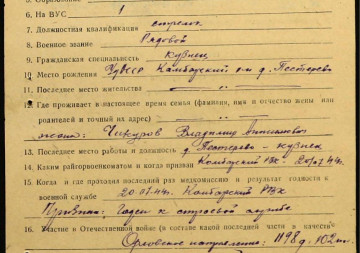 6. На ВУС 1
7. Должностная квалификация стрелок
8. Военное звание Рядовой
9. Гражданская специальность кузнец
10. Место рождения УдАССР Камбарский р-н д. Пестерево
11. Последнее место жительства —„— —„—
12. Где проживает в настоящее время семья (фамилия, имя и отчество жены или
родителей и точный их адрес)
Владимир
13. Последнее место работы и должность д. Пестерево - кузнец
14. Каким райгорвоенкоматом и когда призван Камбарский РВК - 20.07.44г.
15. Когда и где проходил последний раз медкомиссию и результат годности к
военной службе 20.07.44г. Камбарский РВК
Признан: Годен к строевой службе
16. Участие в Отечественной войне (в составе какой последней части и в качестве
Орловское направление: 1198 д. 102